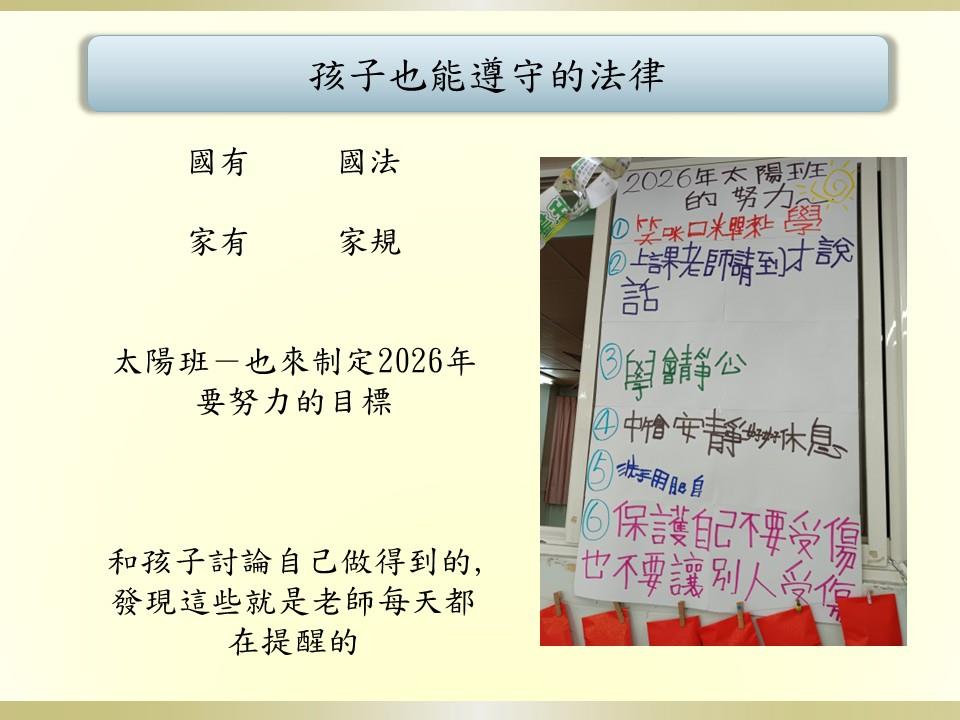 孩子也能遵守的法律
國有 國法
家有 家規
太陽班－也來制定2026年
要努力的目標
和孩子討論自己做得到的,
發現這些就是老師每天都
在提醒的
2026年太陽班
的努力~
① 笑咪口米 學
② 上課老師請到才說
話
③ 學會靜公
④ 中 安靜好好休息
⑤ 洗手用肥自
⑥ 保護自己不要受傷
也不要讓別人受傷